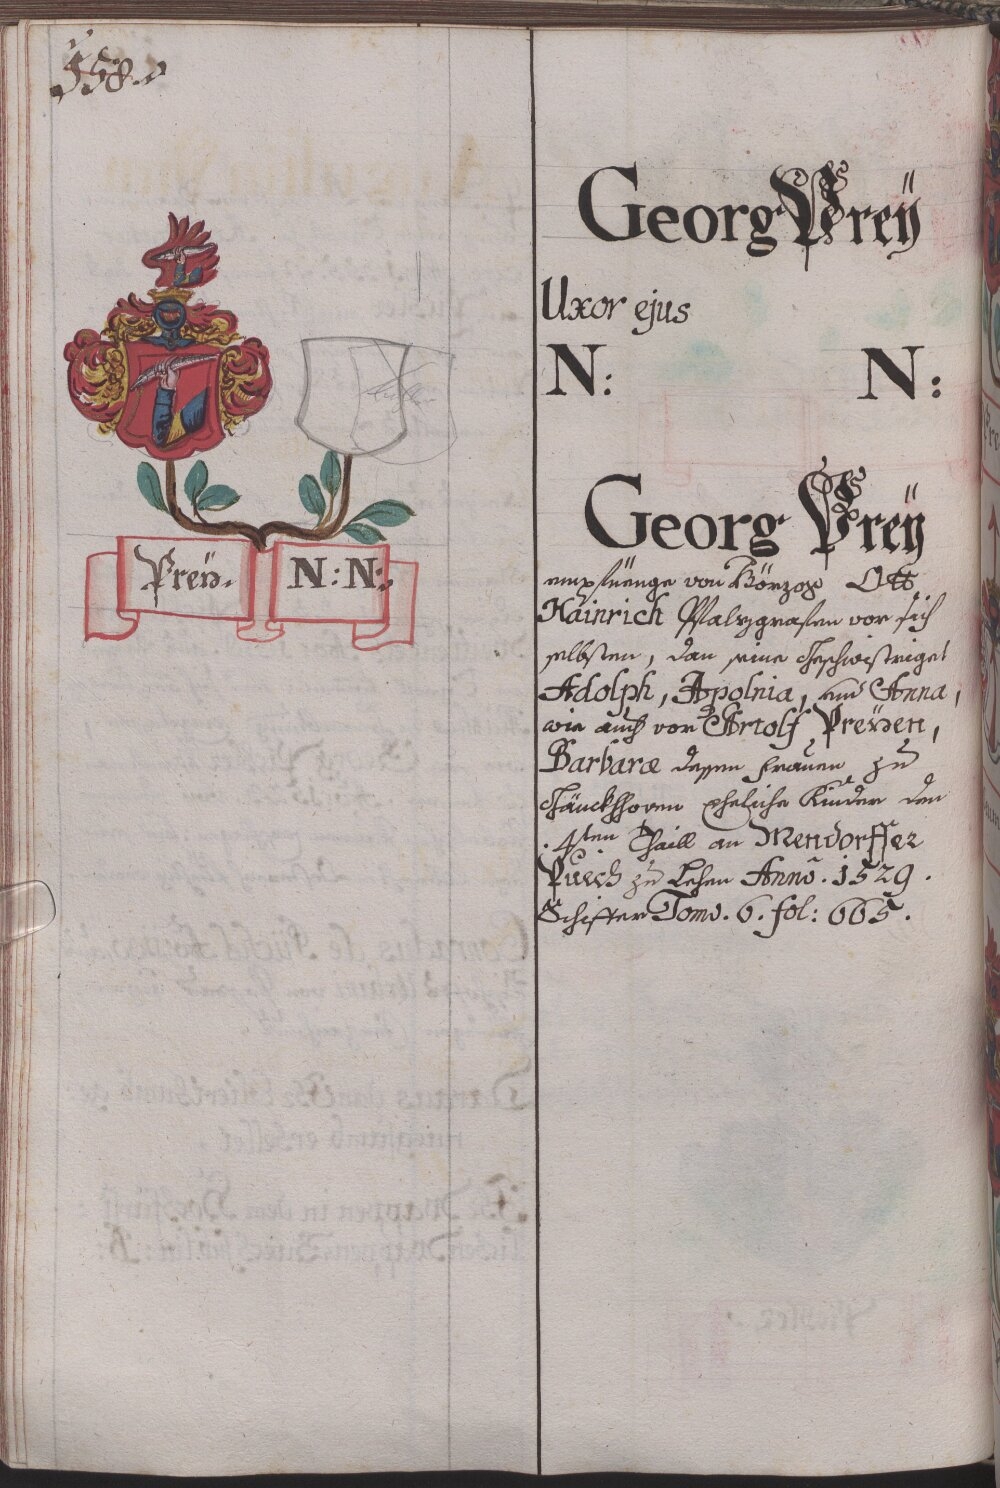 558.
Georg Preÿ
Uxor ejus
N: N:
Preÿ. N: N:
Georg Preÿ
empfienge von Hörzog Ott
Hainrich Pfalzgrafen vor sich
selbsten, dan seine Geschwistriget
Adolph, Apolnia, und Anna,
wie auch vor Artolf Preÿsen,
Barbaræ dessen Frauen zu
eheliche Kinder den
4ten Thaill an Mendorffer
Puech zu Lehen Anno. 1529.
Schifter Tomo. 6. fol: 665.